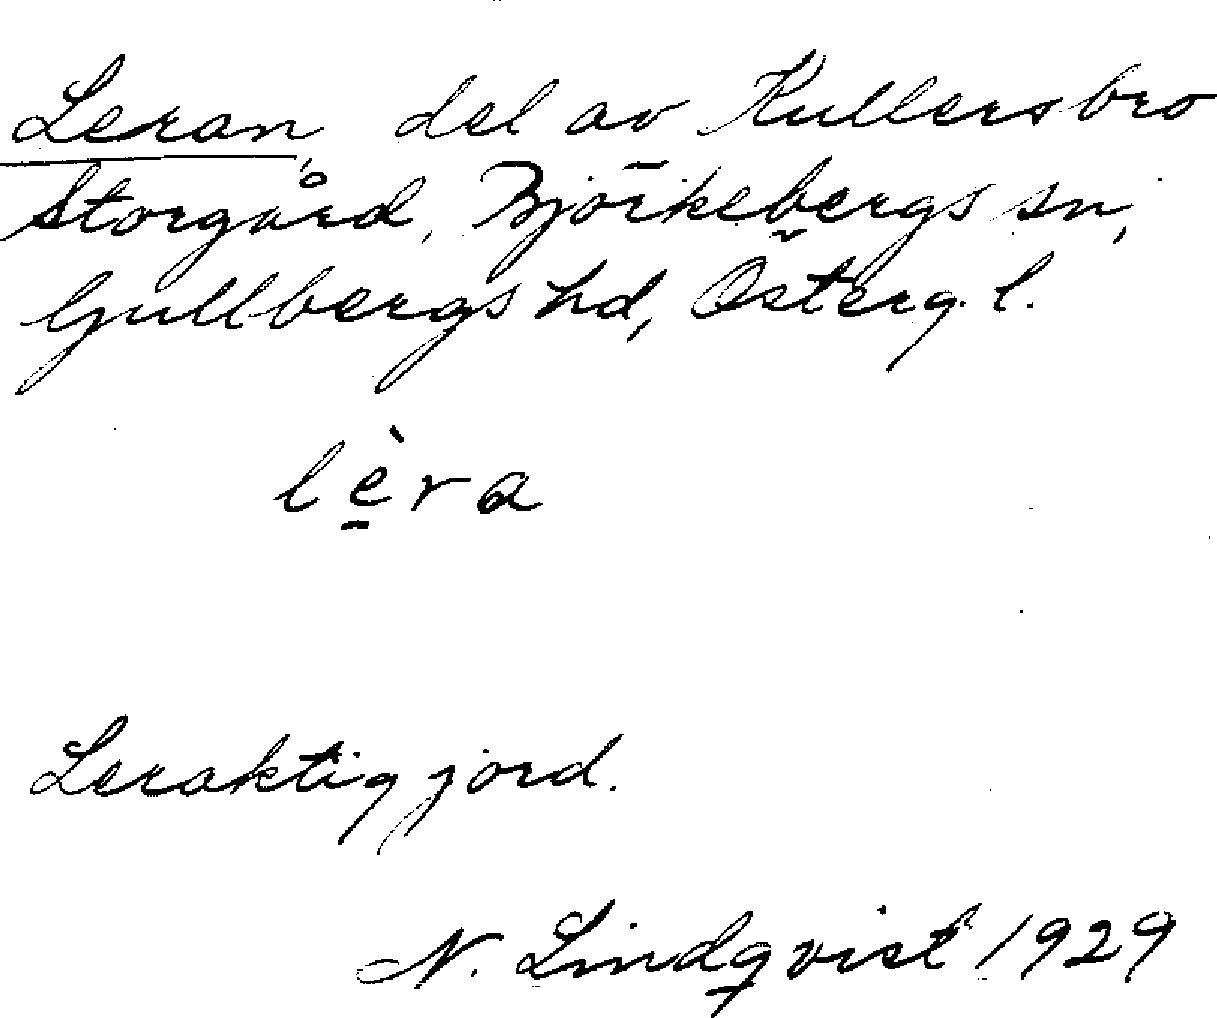 Leran, del av Kullersbro
Storgård, Björkebergs sn,
Gullbergs hd, Österg. l.
lè̠ra
Leraktig jord.
N. Lindqvist 1929